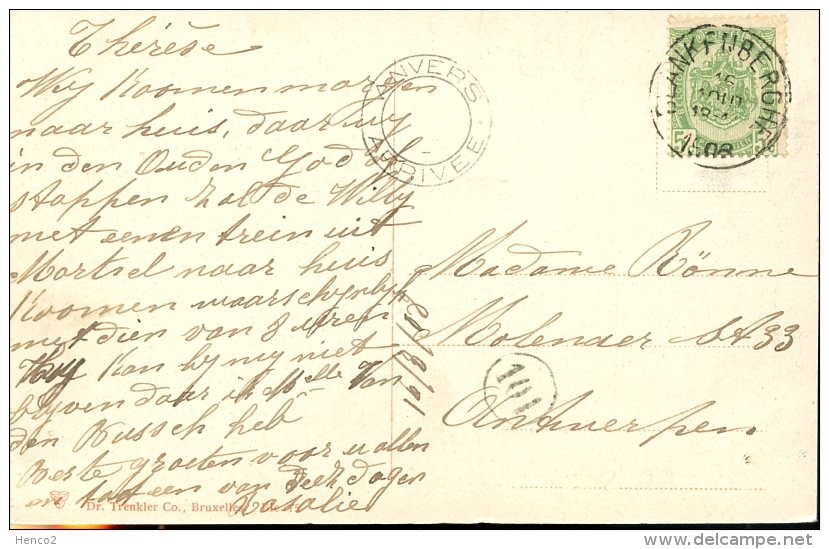 Thérèse
Wij koomen morgen
naar huis, daar wy
in den Ouden God al
stappen zal de Willy
met eenen trein uit
Mortsel naar huis
koomen waarschynlyk
met dien van 8 uren
Hy kan by my niet
blyven daar ik Melle Van
den Bussch heb
Beste groeten voor u allen
en tot een van deez dagen
Rosalie
ANVERS
ARRIVEE
BLANKENBERGHE
15
AOUT
1908
Madame Rönne
Molenaer St 33
Antwerpen
101
Dr. Trenkler Co., Bruxelles
Henco2
www.delcampe.net